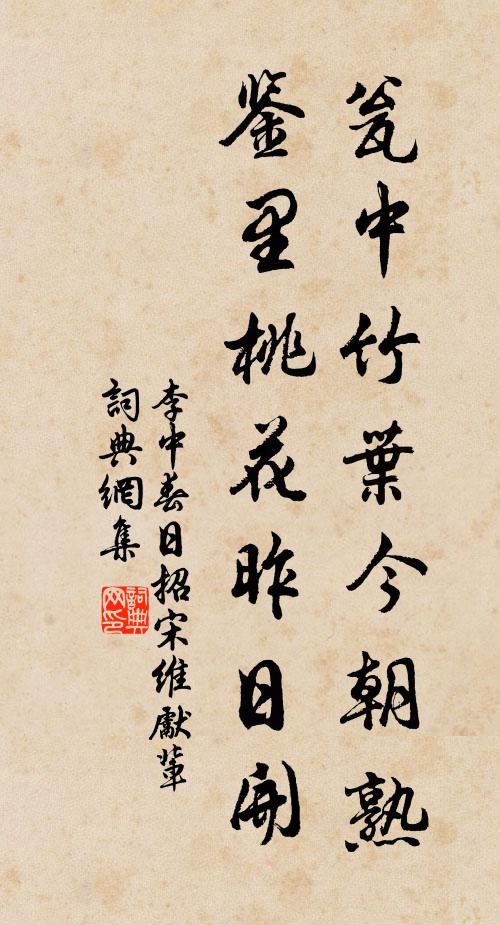 瓮中竹葉今朝熟
鉴里桃花昨日開
李中春日招宋維獻輩
詞典網集
詞典网印